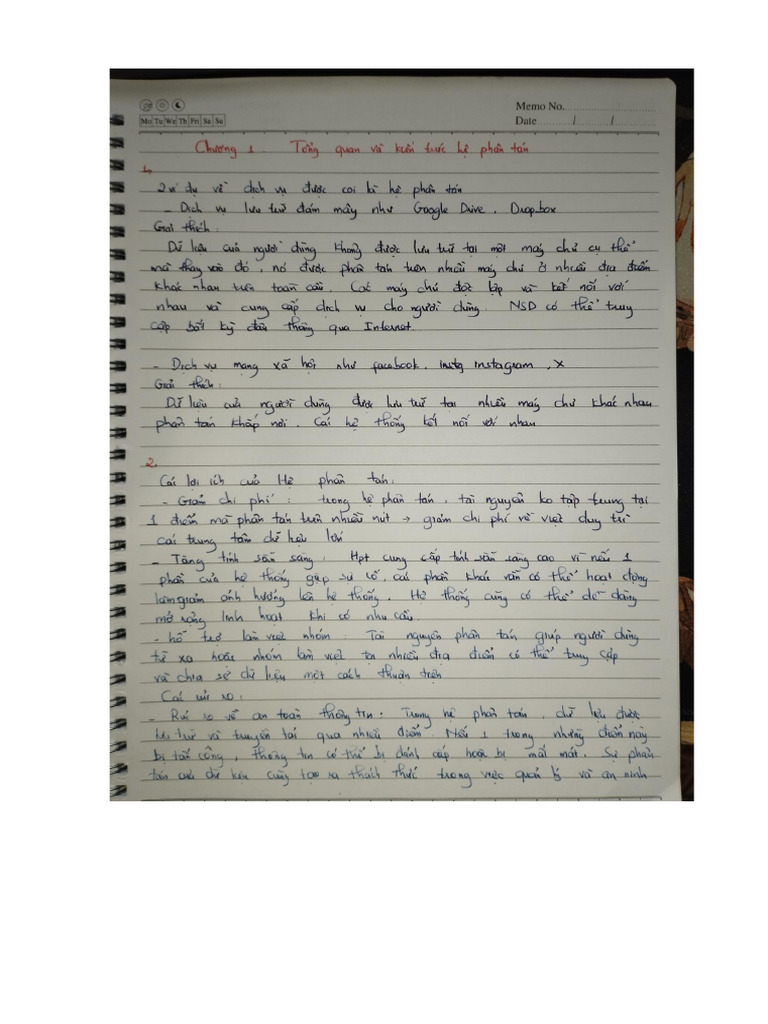 Memo No.
Mo Tu We Th Fri Sa Su
Date / /
Chương 1. Tổng quan và kiến trúc hệ phân tán
1.
2 ví dụ về dịch vụ được coi là hệ phân tán
- Dịch vụ lưu trữ đám mây như Google Drive, Dropbox
Giải thích:
Dữ liệu của người dùng không được lưu trữ tại một máy chủ cụ thể
mà thay vào đó, nó được phân tán trên nhiều máy chủ ở nhiều địa điểm
khác nhau trên toàn cầu. Các máy chủ độc lập và kết nối với
nhau và cung cấp dịch vụ cho người dùng. NSD có thể truy
cập bất kỳ đâu thông qua Internet.
- Dịch vụ mạng xã hội như facebook, insta instagram, X
Giải thích:
Dữ liệu của người dùng được lưu trữ tại nhiều máy chủ khác nhau
phân tán khắp nơi. Các hệ thống kết nối với nhau
2.
Các lợi ích của Hệ phân tán:
- Giảm chi phí: trong hệ phân tán, tài nguyên ko tập trung tại
1 điểm mà phân tán trên nhiều nút → giảm chi phí về việc duy trì
các trung tâm dữ liệu lớn
- Tăng tính sẵn sàng: Hpt cung cấp tính sẵn sàng cao vì nếu 1
phần của hệ thống gặp sự cố, các phần khác vẫn có thể hoạt động
làm giảm ảnh hưởng lên hệ thống. Hệ thống cũng có thể dễ dàng
mở rộng linh hoạt khi có nhu cầu.
- hỗ trợ làm việc nhóm: Tài nguyên phân tán giúp người dùng
từ xa hoặc nhóm làm việc tại nhiều địa điểm có thể truy cập
và chia sẻ dữ liệu một cách thuận tiện
Các rủi ro:
- Rủi ro về an toàn thông tin: Trong hệ phân tán, dữ liệu được
lưu trữ và truyền tải qua nhiều điểm. Nếu 1 trong những điểm này
bị tấn công, thông tin có thể bị đánh cắp hoặc bị mất mát. Sự phân
tán của dữ liệu cũng tạo ra thách thức trong việc quản lý và an ninh